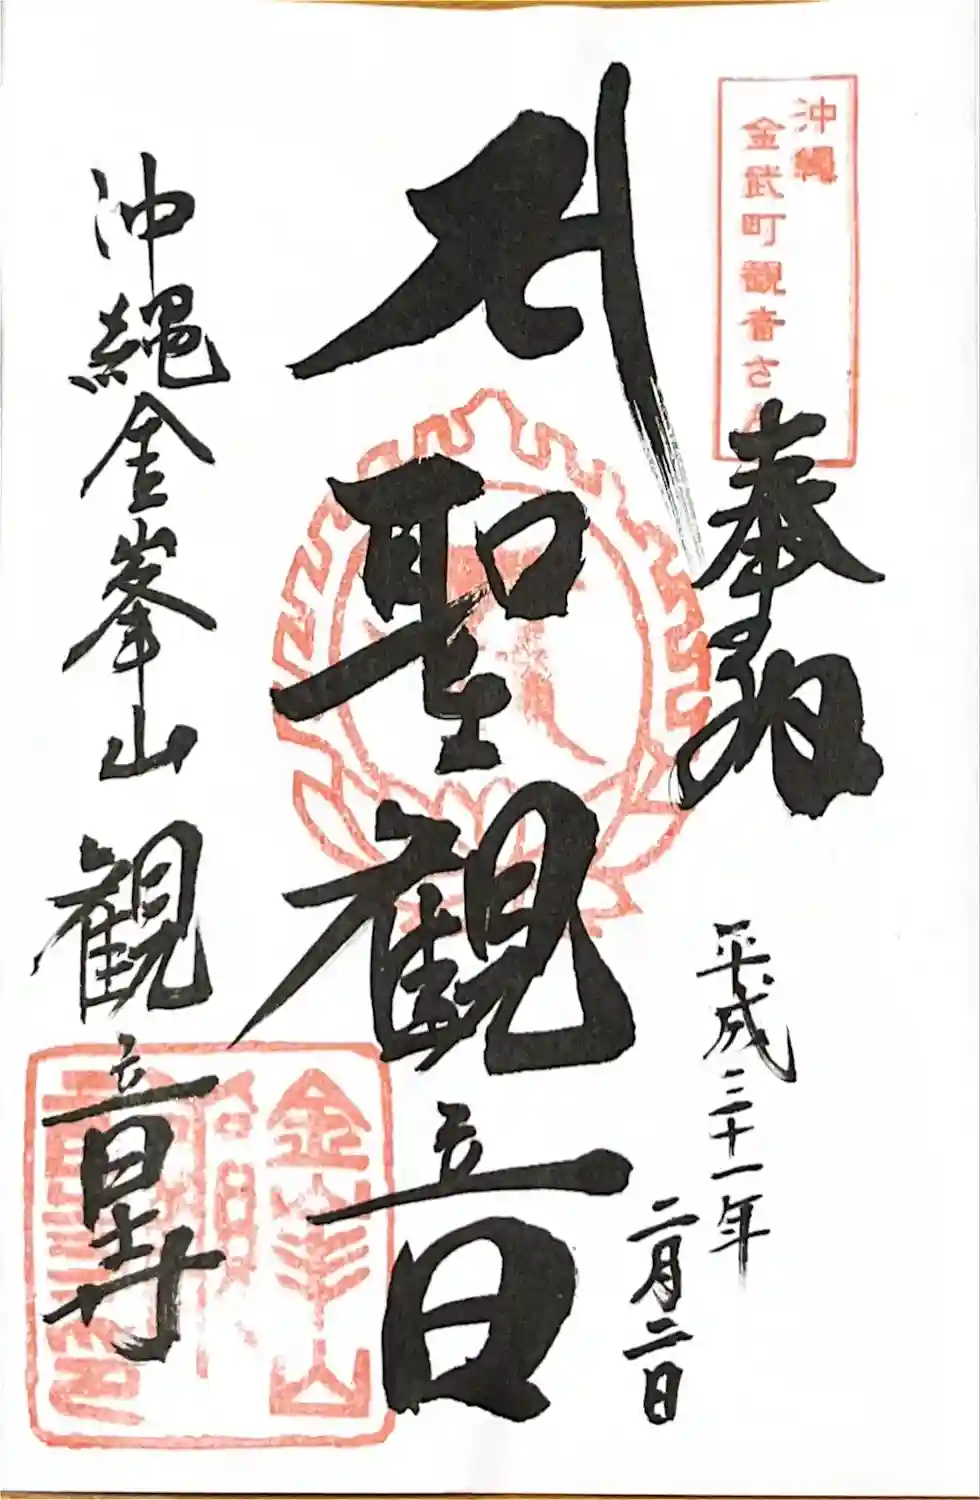 沖縄
金武町観音さん
奉納
平成三十一年
二月二日
聖観音
沖縄金峯山観音寺